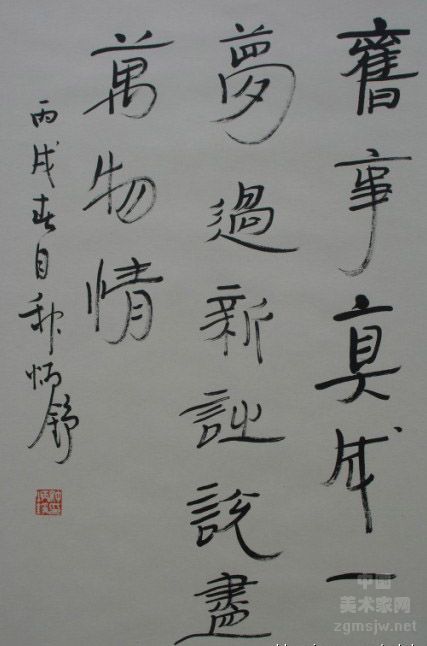 舊事真成一
夢過新詩說盡
萬物情
丙戌春 炳舒
中国
美术家网
zgmsjw.net